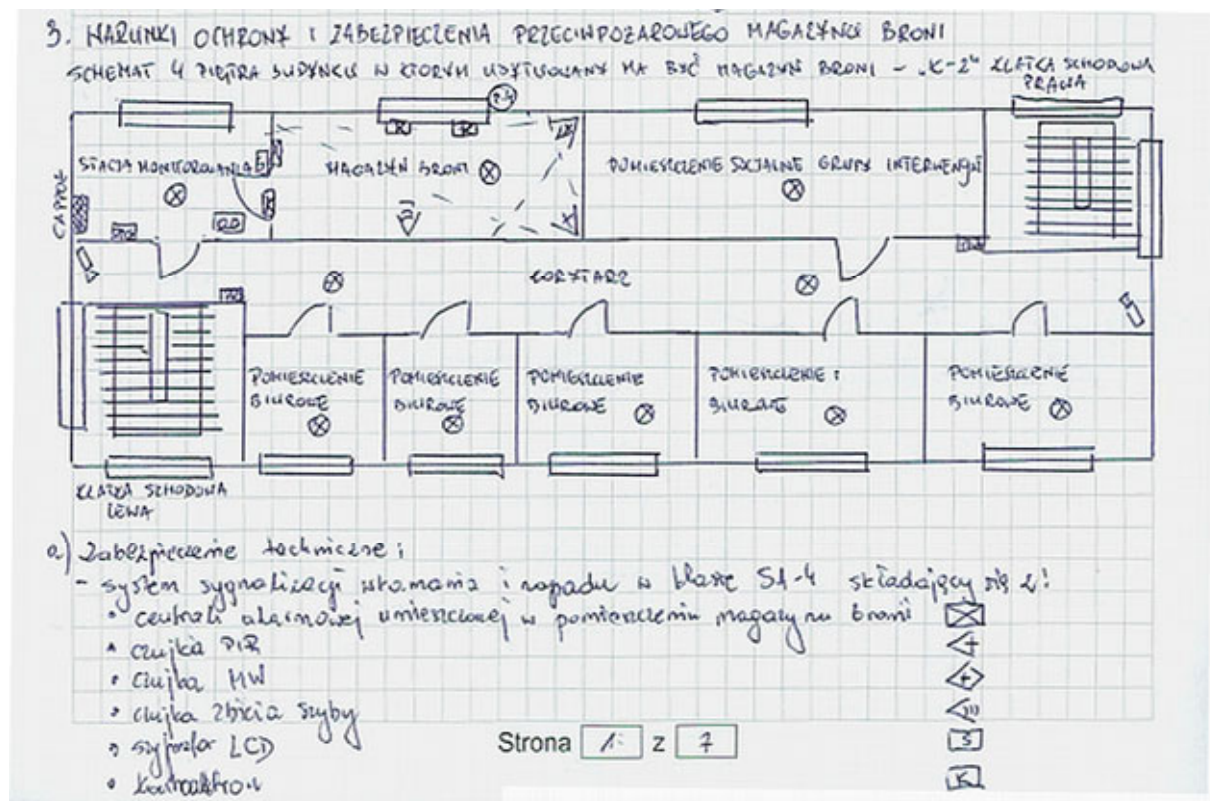 3. WARUNKI OCHRONY I ZABEZPIECZENIA PRZECIWPOŻAROWEGO MAGAZYNU BRONI
SCHEMAT 4 PIĘTRA BUDYNKU W KTÓRYM USYTUOWANY MA BYĆ MAGAZYN BRONI – „K-2" KLATKA SCHODOWA
PRAWA
STACJA MONITOROWANIA
MAGAZYN BRONI
POMIESZCZENIE SOCJALNE GRUPY INTERWENCYJ
KORYTARZ
POMIESZCZENIE
BIUROWE
POMIESZCZENIE
BIUROWE
POMIESZCZENIE
BIUROWE
POMIESZCZENIE
BIUROWE
POMIESZCZENIE
BIUROWE
KLATKA SCHODOWA
LEWA
a.) Zabezpieczenie techniczne:
- system sygnalizacji włamania i napadu w klasie SA-4 składający się z:
• centrali alarmowej umieszczonej w pomieszczeniu magazynu broni
• czujka PIR
• czujka MW
• czujka zbicia szyby
• szyfrator LCD
S
• kontraktron
K
Strona 1. z 7